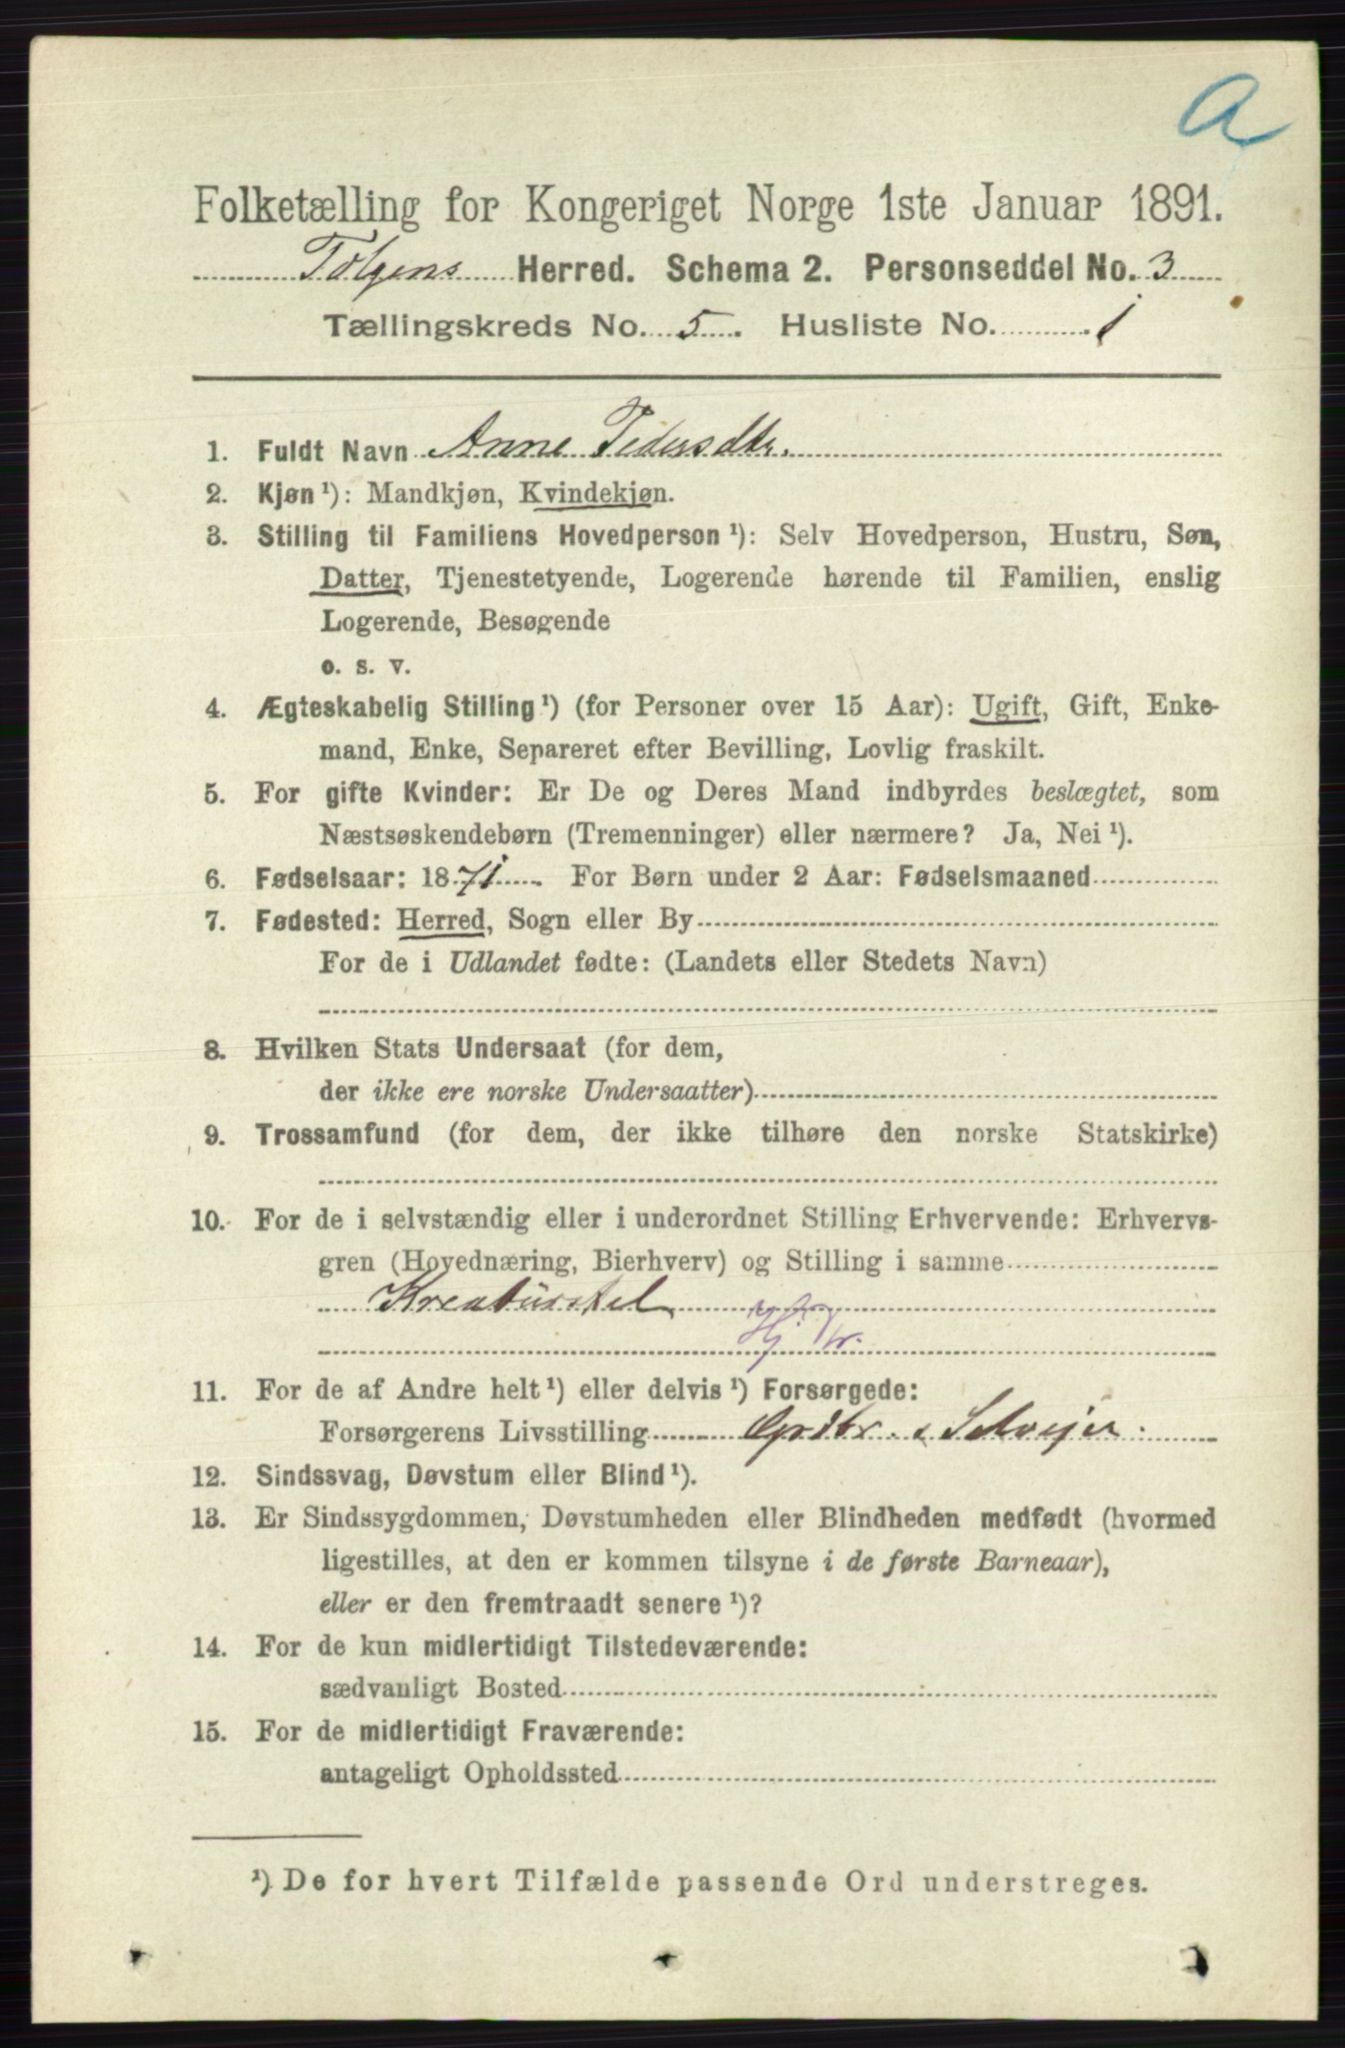 a
Folketælling for Kongeriget Norge 1ste Januar 1891.
Tolgens Herred. Schema 2. Personseddel No. 3
Tællingskreds No. 5. Husliste No. 1
1. Fuldt Navn Anne Pedersdtr.
2. Kjøn ¹): Mandkjøn, Kvindekjøn.
3. Stilling til Familiens Hovedperson ¹): Selv Hovedperson, Hustru, Søn,
Datter, Tjenestetyende, Logerende hørende til Familien, enslig
Logerende, Besøgende
o. s. v.
4. Ægteskabelig Stilling ¹) (for Personer over 15 Aar): Ugift, Gift, Enke-
mand, Enke, Separeret efter Bevilling, Lovlig fraskilt.
5. For gifte Kvinder: Er De og Deres Mand indbyrdes beslægtet, som
Næstsøskendebørn (Tremenninger) eller nærmere? Ja, Nei ¹).
6. Fødselsaar: 1871. For Børn under 2 Aar: Fødselsmaaned
7. Fødested: Herred, Sogn eller By
For de i Udlandet fødte: (Landets eller Stedets Navn)
8. Hvilken Stats Undersaat (for dem,
der ikke ere norske Undersaatter)
9. Trossamfund (for dem, der ikke tilhøre den norske Statskirke)
10. For de i selvstændig eller i underordnet Stilling Erhvervende: Erhvervs-
gren (Hovednæring, Bierhverv) og Stilling i samme
Kreaturstel
11. For de af Andre helt ¹) eller delvis ¹) Forsørgede:
Forsørgerens Livsstilling Grdbr. Selvejer.
12. Sindssvag, Døvstum eller Blind ¹).
13. Er Sindssygdommen, Døvstumheden eller Blindheden medfødt (hvormed
ligestilles, at den er kommen tilsyne i de første Barneaar),
eller er den fremtraadt senere ¹)?
14. For de kun midlertidigt Tilstedeværende:
sædvanligt Bosted
15. For de midlertidigt Fraværende:
antageligt Opholdssted
¹) De for hvert Tilfælde passende Ord understreges.